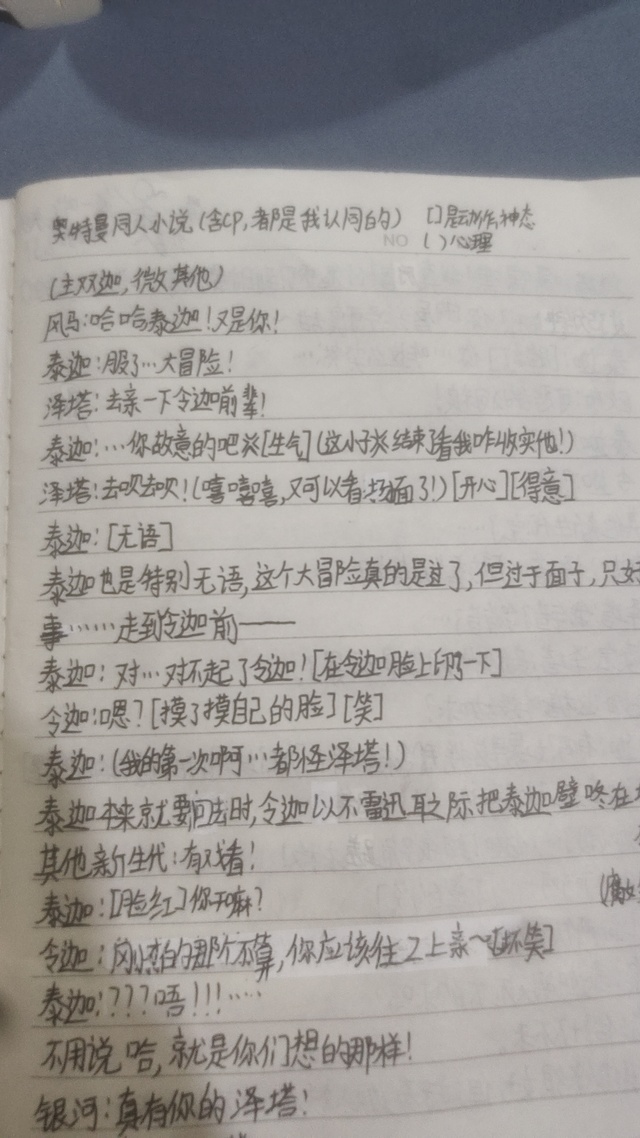 奥特曼同人小说(含CP,都是我认同的) []是动作,神态
NO ( )心理
(主双迦,微其他)
风马:哈哈泰迦!又是你!
泰迦:服了…大冒险!
泽塔:去亲一下令迦前辈!
泰迦:…你故意的吧※[生气](这小子※结束了看我咋收实他!)
泽塔:去吹去吹!(嘻嘻嘻,又可以看场面了!)[开心][得意]
泰迦:[无语]
泰迦也是特别无语,这个大冒险真的是过了,但过于面子,只好
事……走到令迦前——
泰迦:对…对不起了令迦![在令迦脸上印了一下]
令迦:嗯?[摸了摸自己的脸][笑]
泰迦:(我的第一次啊…都怪泽塔!)
泰迦本来就要回去时,令迦以不雷迅耳之际把泰迦壁咚在
其他新生代:有戏看!
泰迦:[脸红]你干嘛?
(腐女
令迦:刚才的那个不算,你应该往乙上亲~[坏笑]
泰迦:???唔!!!……
不用说哈,就是你们想的那样!
银河:真有你的泽塔!